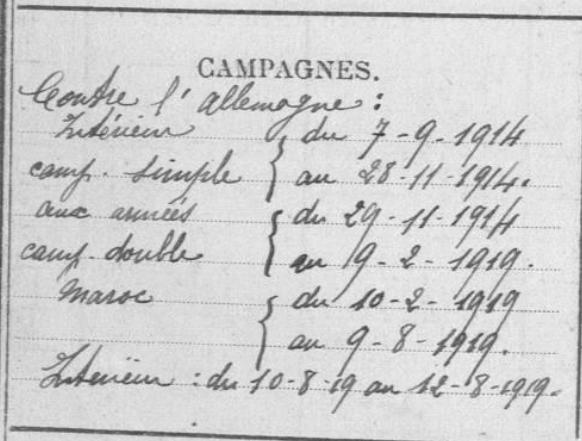 CAMPAGNES.
Contre l'Allemagne :
Intérieur { du 7-9-1914
camp. simple au 28-11-1914.
aux armées { du 29-11-1914
camp. double au 9-2-1919.
Maroc { du 10-2-1919
au 9-8-1919.
Intérieur : du 10-8-19 au 12-8-1919.